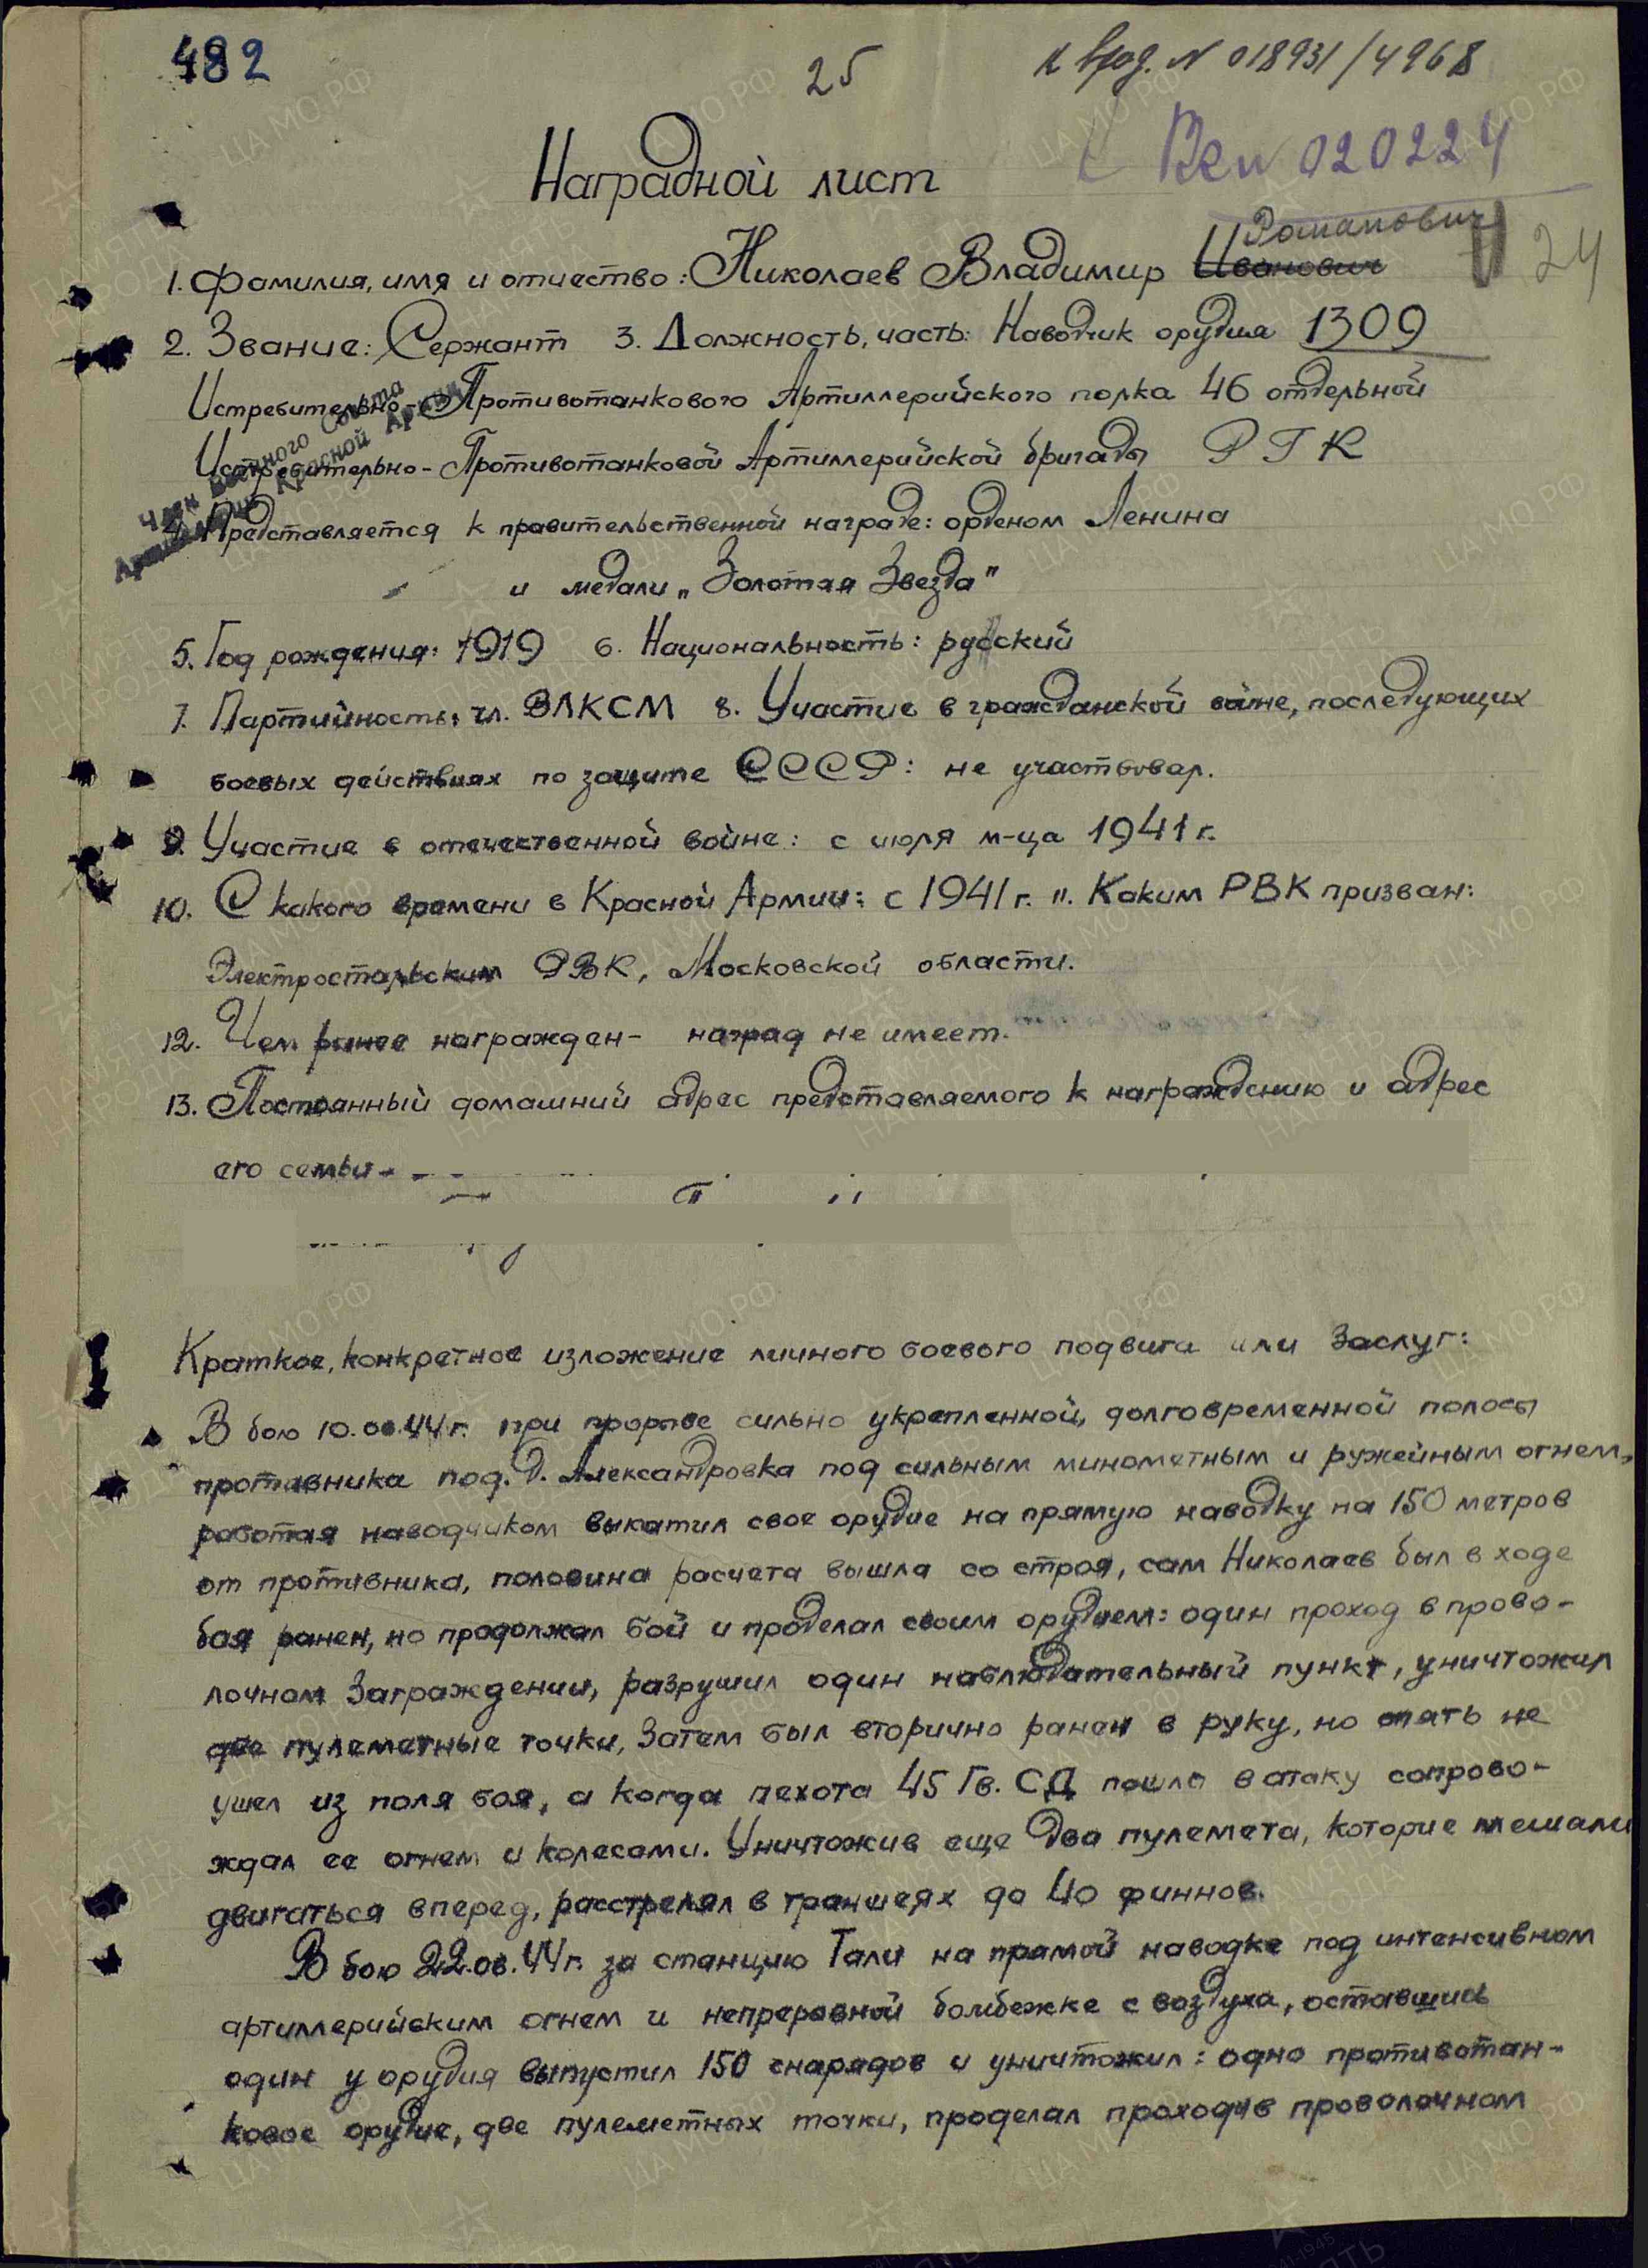 482
25
к вход. N 018931/4968
Вси 020224
Наградной лист
Романович
24
1. Фамилия, имя и отчество: Николаев Владимир Иванович
2. Звание: Сержант 3. Должность, часть: Наводчик орудия 1309
Истребительно-Противотанкового Артиллерийского полка 46 отдельной
Истребительно-Противотанковой Артиллерийской бригады РГК
Член Военного Совета
Артиллерии Красной Армии
4. Представляется к правительственной награде: орденом Ленина
и медали „Золотая Звезда"
5. Год рождения: 1919 6. Национальность: русский
7. Партийность: чл. ВЛКСМ 8. Участие в гражданской войне, последующих
боевых действиях по защите СССР: не участвовал.
9. Участие в отечественной войне: с июля м-ца 1941 г.
10. С какого времени в Красной Армии: с 1941 г. 11. Каким РВК призван:
Электростальским РВК, Московской области.
12. Чем ранее награжден- наград не имеет.
13. Постоянный домашний адрес представляемого к награждению и адрес
его семьи-
Краткое, конкретное изложение личного боевого подвига или заслуг:
В бою 10.06.44 г. при прорыве сильно укрепленной, долговременной полосы
противника под. д. Александровка под сильным минометным и ружейным огнем,
работая наводчиком выкатил свое орудие на прямую наводку на 150 метров
от противника, половина расчета вышла со строя, сам Николаев был в ходе
боя ранен, но продолжал бой и проделал своим орудием: один проход в прово-
лочном заграждении, разрушил один наблюдательный пункт, уничтожил
две пулеметные точки, Затем был вторично ранен в руку, но опять не
ушел из поля боя, а когда пехота 45 Гв. СД пошла в атаку сопрово-
ждал ее огнем и колесами. Уничтожив еще два пулемета, которые мешали
двигаться вперед, расстрелял в траншеях до 40 финнов.
В бою 22.06.44 г. за станцию Тали на прямой наводке под интенсивном
артиллерийским огнем и непрерывной бомбежке с воздуха, оставшись
один у орудия выпустил 150 снарядов и уничтожил: одно противотан-
ковое орудие, две пулеметных точки, проделал проход в проволочном